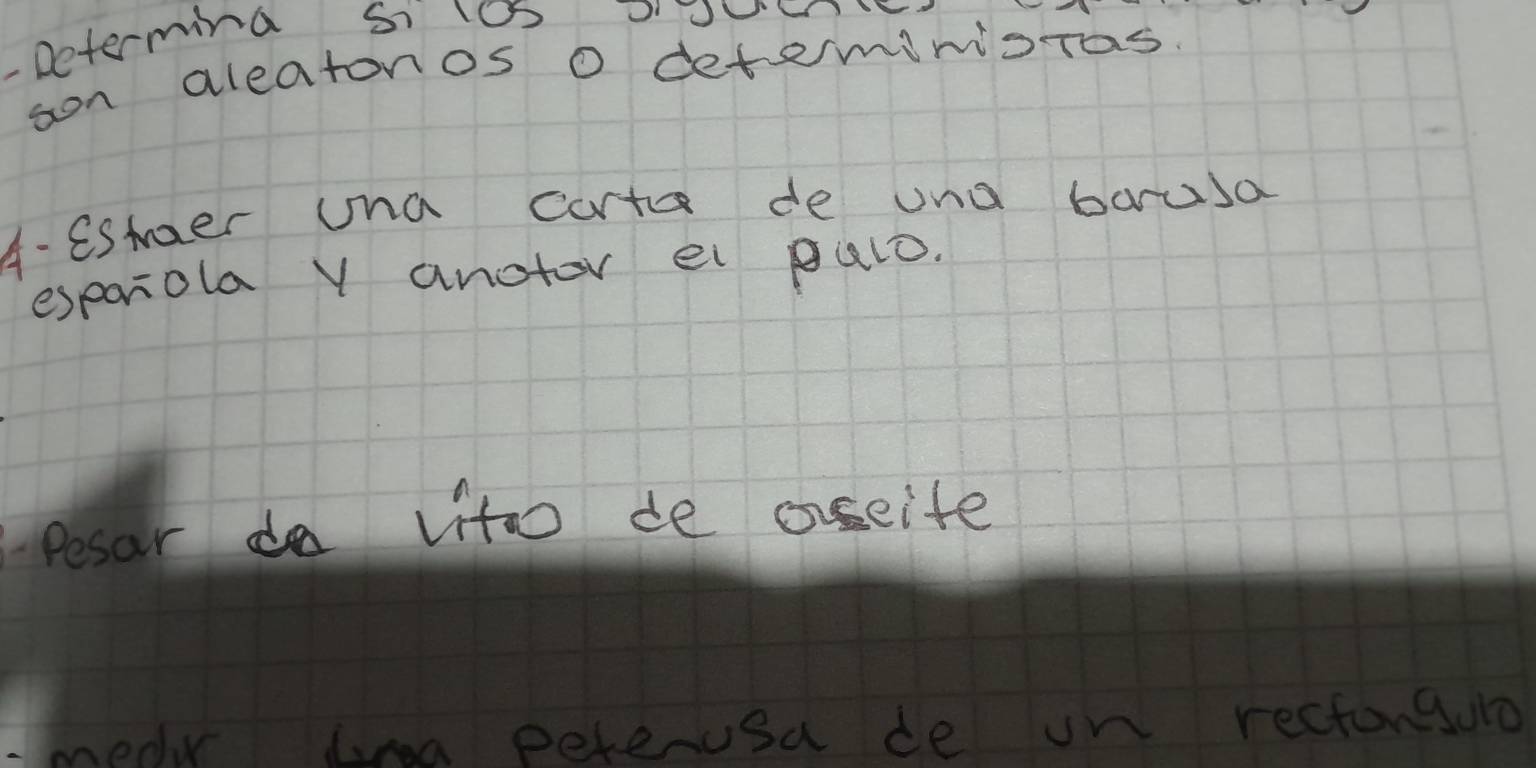 - Determina si los
son aleatorios o determinístas.
A- Estraer una carta de una baraja
española y anotar el palo.
- Pesar litro de aseite
- medir petenusa de un rectangulo